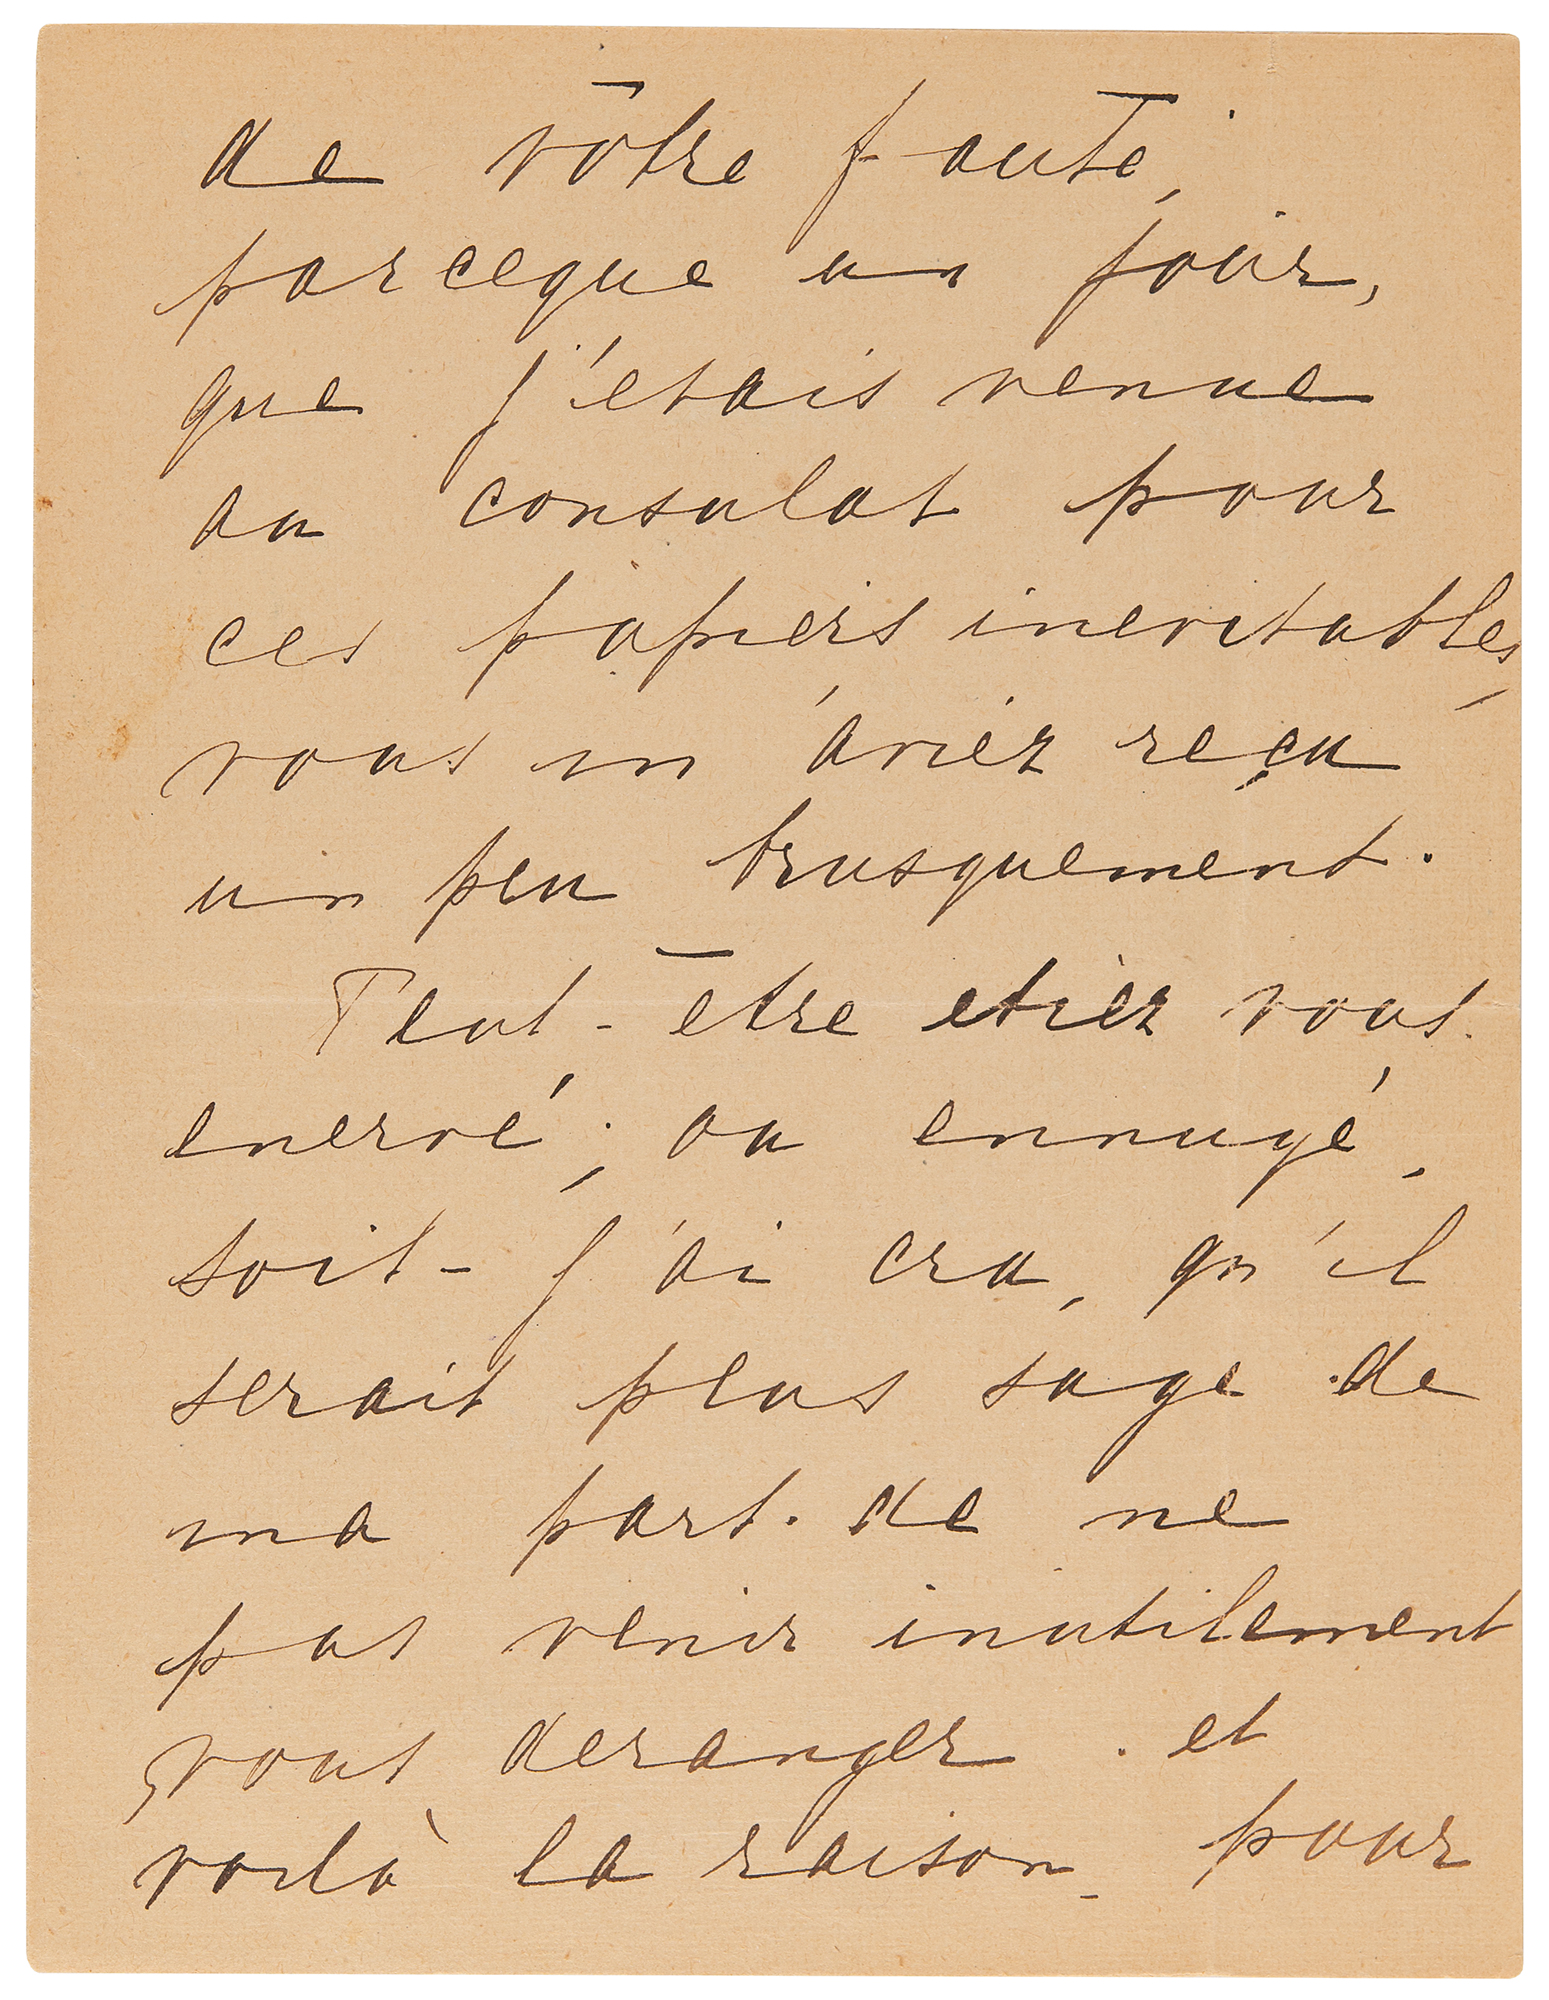 de vôtre faute,
parceque un jour,
que j'etais venue
au consulat pour
ces papiers inevitables,
vous m'aviez reçu
un peu brusquement.
Peut-être etiez vous
enervé, ou ennuyé,
soit - j'ai cru, qu'il
serait plus sage de
ma part de ne
pas venir inutilement
vous deranger. et
voilà la raison pour